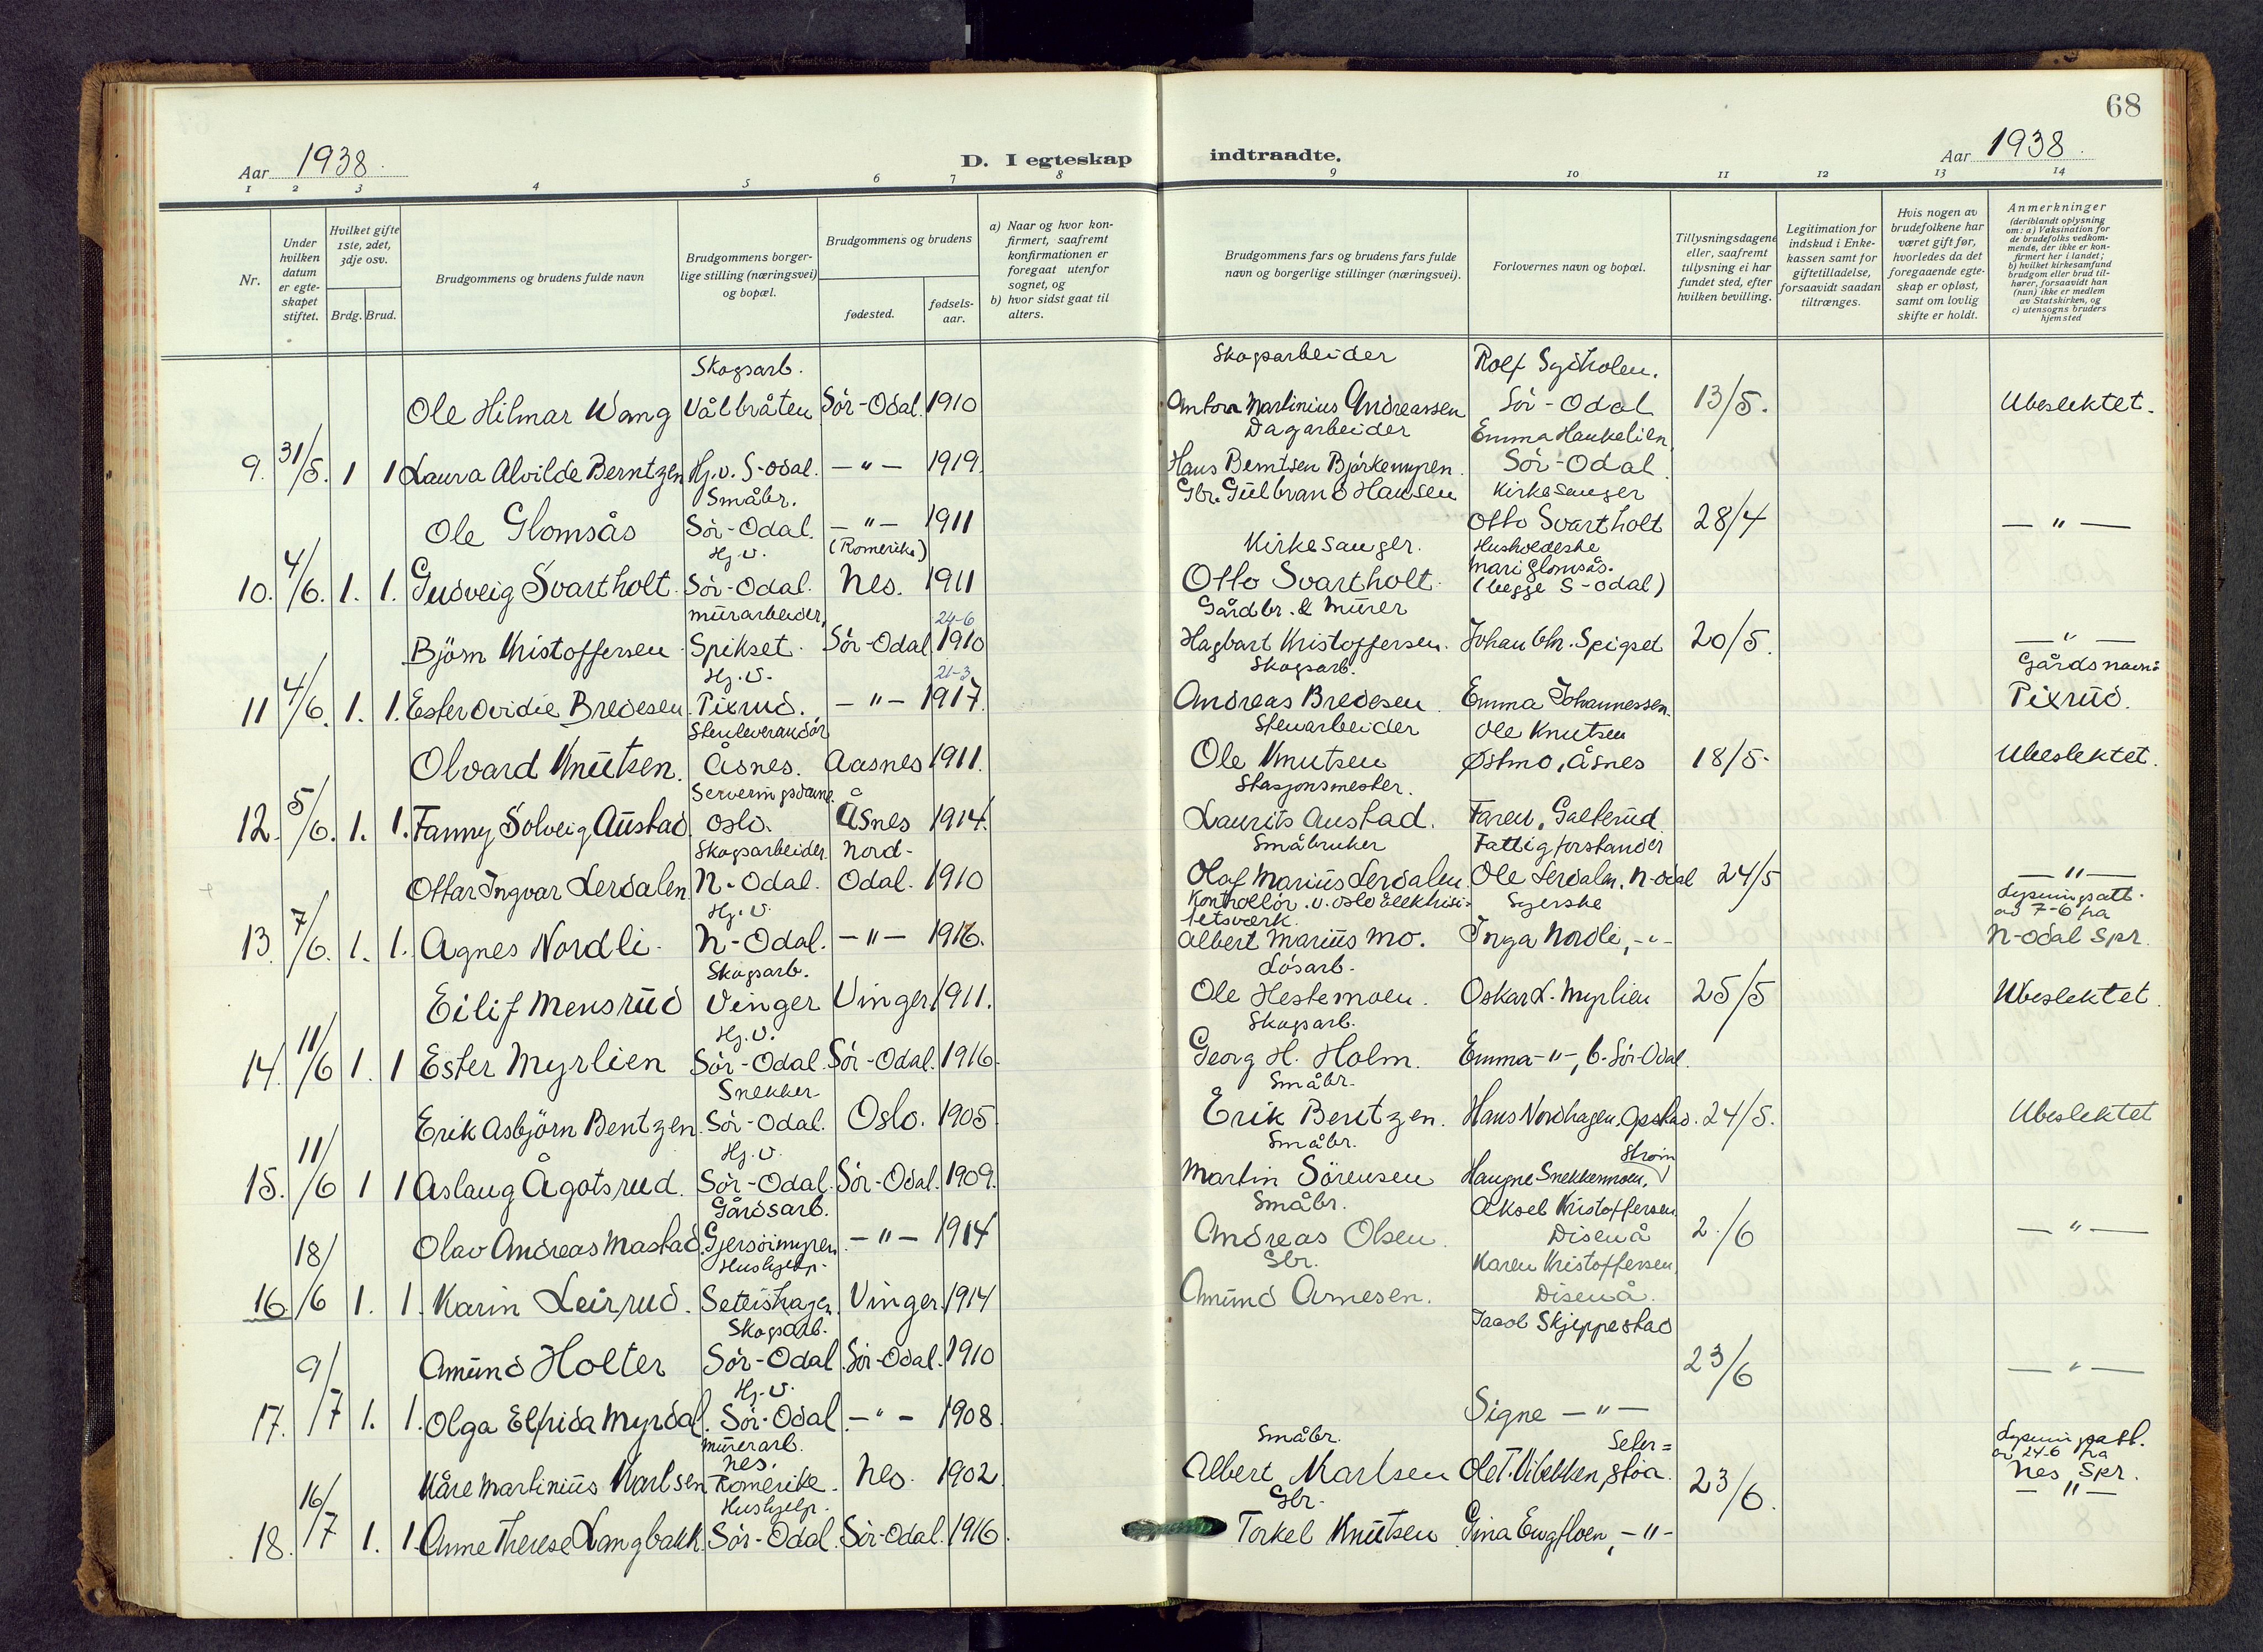 68
Aar 1938.
D. I egteskap indtraadte.
Aar 1938.
1 2 3 4 5 6 7 8 9 10 11 12 13 14
Nr.
Under hvilken datum er egteskapet stiftet.
Hvilket gifte 1ste, 2det, 3dje osv.
Brdg. Brud.
Brudgommens og brudens fulde navn
Brudgommens borgerlige stilling (næringsvei) og bopæl.
Brudgommens og brudens
fødested.
fødselsaar.
a) Naar og hvor konfirmert, saafremt konfirmationen er foregaat utenfor sognet, og
b) hvor sidst gaat til alters.
Brudgommens fars og brudens fars fulde navn og borgerlige stillinger (næringsvei).
Forlovernes navn og bopæl.
Tillysningsdagene eller, saafremt tillysning ei har fundet sted, efter hvilken bevilling.
Legitimation for indskud i Enkekassen samt for giftetilladelse, forsaavidt saadan tiltrænges.
Hvis nogen av brudefolkene har været gift før, hvorledes da det foregaaende egteskap er opløst, samt om lovlig skifte er holdt.
Anmerkninger
(deriblandt oplysning om: a) Vaksination for de brudefolks vedkommende, der ikke er konfirmert her i landet; b) hvilket kirkesamfund brudgom eller brud tilhører, forsaavidt han (hun) ikke er medlem av Statskirken, og c) utensogns bruders hjemsted
Skogsarb. Skogsarbeider Rolf
Ole Hilmar Wang Vålbråten Sör-Odal. 1910 Anton Martinius Andreassen Sör-Odal 13/5. Ubeslektet.
Dagarbeider Emma Haukelien
9. 31/5. 1 1 Laura Alvilde Berntzen Hj.v. S-Odal. -"- 1919. Hans Berntsen Björkemyren. Sör-Odal
Småbr. Gbr. Gulbrand Hansen Kirkesanger
Ole Glomsås Sör-Odal. -"- 1911 Otto Svartholt 28/4 -"-
Hj.v. (Romerike) Kirkesanger. Husholderske
Mari Glomsås.
10. 4/6. 1. 1. Gudveig Svartholt. Sör-Odal. Nes. 1911 Otto Svartholt. (begge S-Odal)
Murarbeider, 24-6 Gårdbr. & Murer
Björn Kristoffersen. Spikset. Sör-Odal 1910 Hagbart Kristoffersen. Johan Chr. Spigset 20/5. -"-
Hj.v. 21-3 Skogsarb. Gårdsnavn:
11 4/6. 1. 1. Ester Ovidie Bredesen Pixrud. -"- 1917. Andreas Bredesen. Emma Johannessen. Pixrud.
Stenleverandör Stenarbeider Ole Knutsen
Olvard Knutsen. Åsnes. Aasnes 1911. Ole Knutsen Østmo, Åsnes 18/5. Ubeslektet.
Serveringsdame. Stasjonsmester.
12. 5/6. 1. 1. Fanny Solveig Austad Oslo. Åsnes 1914. Laurits Austad. Faren, Galterud.
Skogsarbeider. Nord- Småbruker Fattigforstander
Ottar Ingvar Lerdalen N-Odal. Odal. 1910 Olaf Marius Lerdalen. Ole Lerdalen, N-Odal 24/5 -"-
Hj.v. Kontrollör v. Oslo Elektrisi= Syerske Lysningsatt.
tetsværk. av 7-6 fra
13. 7/6. 1. 1. Agnes Nordli. N-Odal. -"- 1916. Albert Marius Mo. Inga Nordli, -"- N-Odal Spr.
Skogsarb. Lösarb.
Eilif Mensrud Vinger Vinger 1911. Ole Hestemoen. Oskar L. Myrlien 25/5 Ubeslektet.
Hj.v. Skogsarb.
14. 11/6 1. 1 Ester Myrlien Sör-Odal. Sör-Odal. 1916. Georg H. Holm. Emma -"-, b. Sör-Odal.
Snekker Småbr.
Erik Asbjörn Bentzen. Sör-Odal. Oslo. 1905 Erik Bentzen. Hans Nordhagen, Opstad. 24/5. Ubeslektet
Hj.v. Småbr. Ström
15. 11/6 1 1 Aslaug Ågotsrud. Sör-Odal. Sör-Odal. 1909. Martin Sörensen Snekkermoen,
Gårdsarb. Småbr. Aksel Kristoffersen
Olav Andreas Mastad. Gjersöimyren. -"- 1914 Andreas Olsen. Disenå 2./6 -"-
Hushjelp. Gbr. Karen Kristoffersen,
16. 18/6 1. 1. Karin Leirrud. Vinger. 1914 Amund Arnesen. Disenå.
Skogsarb. Jacob Skjeppestad
Amund Holter Sör-Odal. Sör-Odal. 1910 23/6 -"-
Hj.v.
17. 9/7 1. 1. Olga Elfrida Myrdal. Sör-Odal -"- 1908. Signe -"-
Murerarb. Småbr. Seter= Lysningsatt.
Nes, av 24-6 fra
Kåre Martinius Karlsen Romerike. Nes. 1902 Albert Karlsen Ole T. Vibekken, støa. 23/6. Nes Spr.
Hushjelp. Gbr. -"-
18. 16/7 1. 1. Anne Therese Langbakk. Sör-Odal. Sör-Odal. 1916. Torkel Knutsen Gina Engfloen, -"-